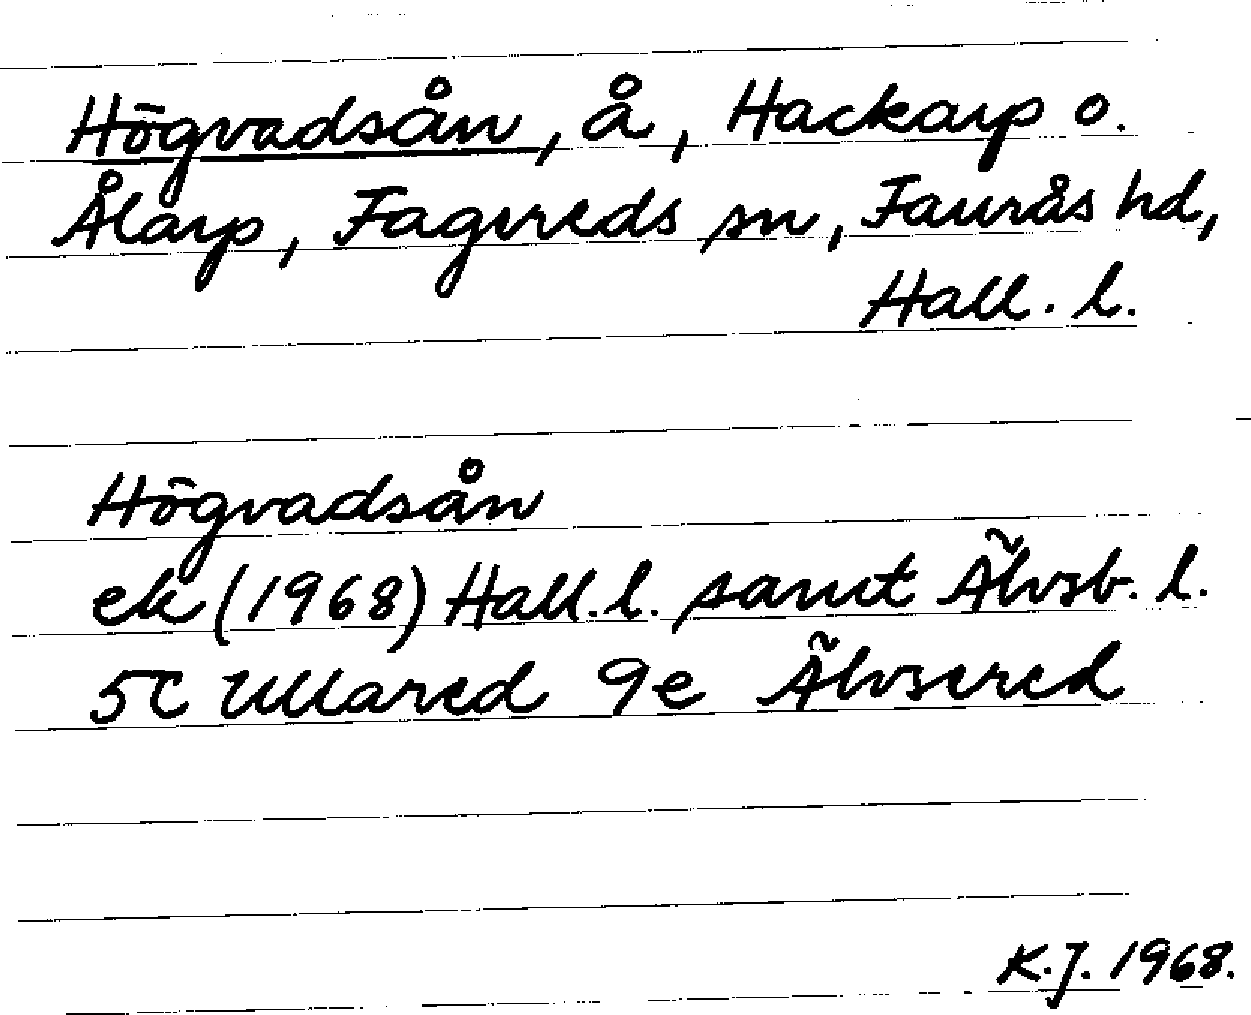 Högvadsån, å, Hackarp o.
Ålarp, Fagereds sn, Faurås hd,
Hall. l.
Högvadsån
ek (1968) Hall. l. samt Älvsb. l.
5C Ullared 9e Älvsered
K.J. 1968.